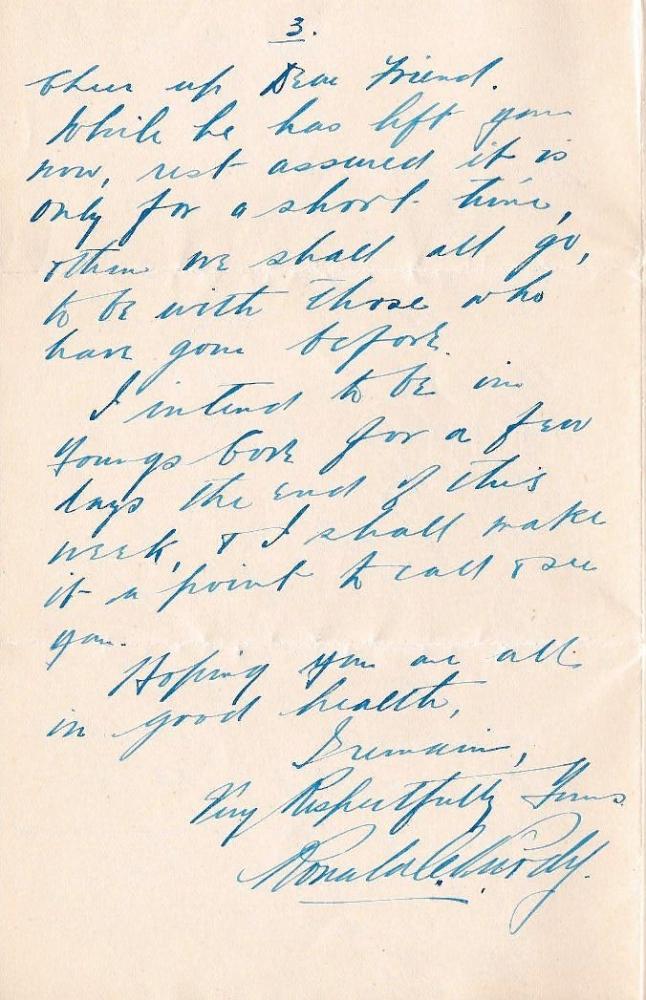 3.
Cheer up Dear Friend.
While he has left you
now, rest assured it is
only for a short time,
& then we shall all go,
to be with those who
have gone before.
I intend to be in
Youngs Cove for a few
days the end of this
week, & I shall make
it a point to call & see
you.
Hoping you are all
in good health,
I remain,
Very Respectfully Yours
Ronald